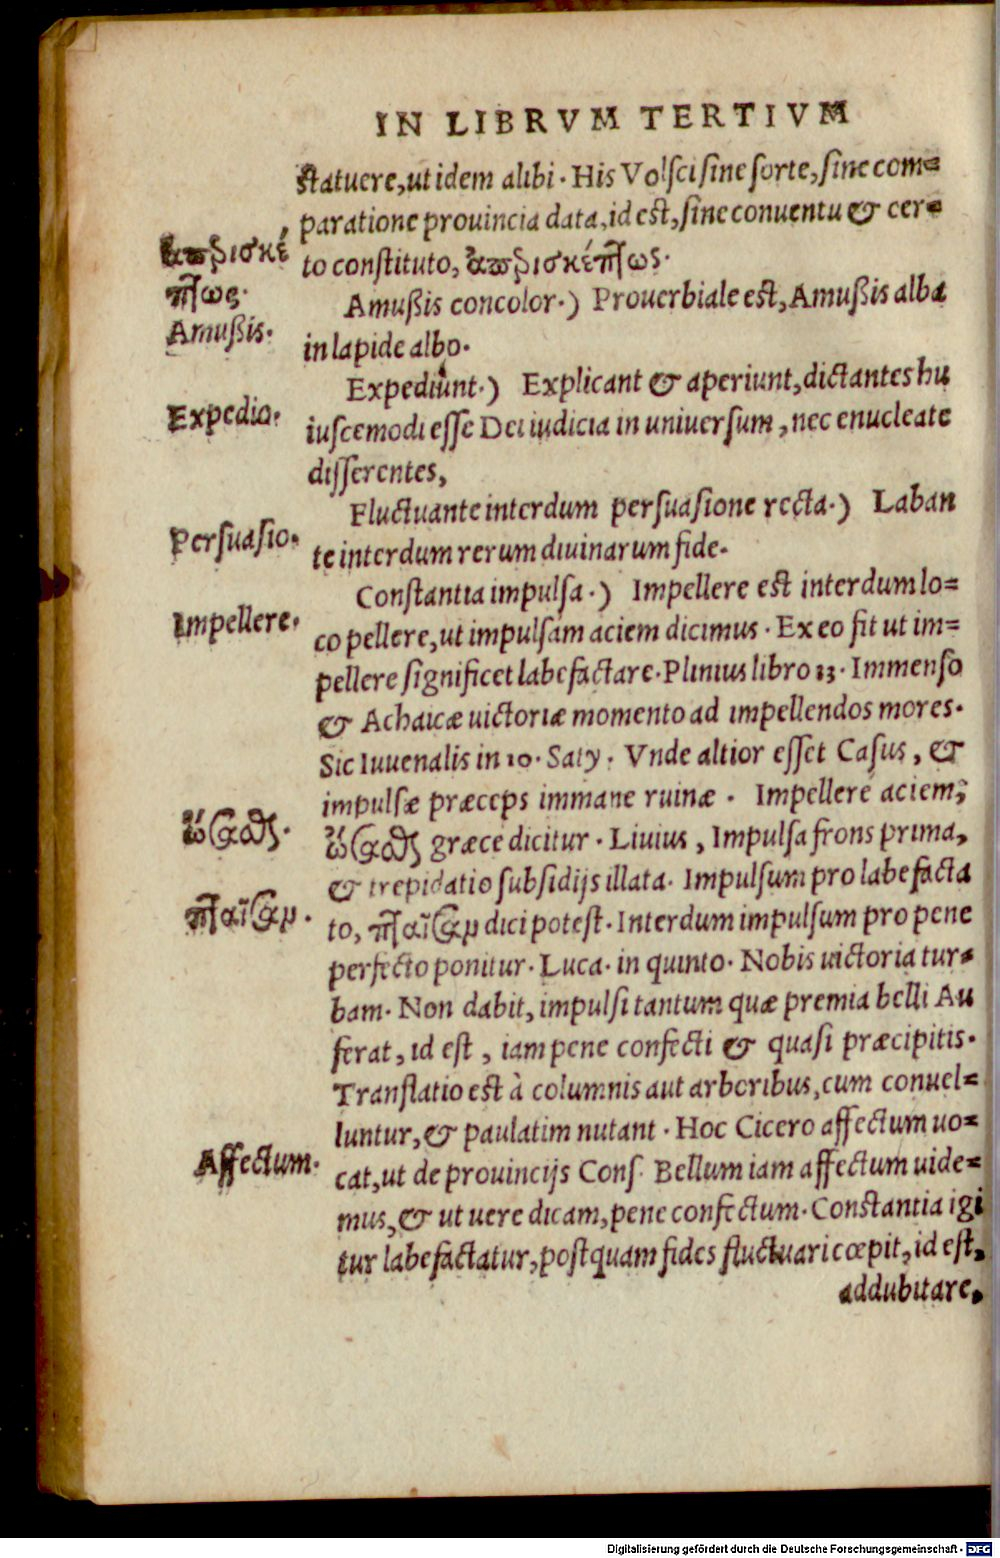 IN LIBRVM TERTIVM
ſtatuere, ut idem alibi. His Volſci ſine ſorte, ſine com=
paratione prouincia data, id eſt, ſine conuentu & cer=
to conſtituto, ἀπρισκέπτως.
Amußis concolor.) Prouerbiale eſt, Amußis alba
in lapide albo.
Expediunt.) Explicant & aperiunt, dictantes hu
iuſcemodi eſſe Dei iudicia in uniuerſum, nec enucleate
differentes,
Fluctuante interdum perſuaſione recta.) Laban
te interdum rerum diuinarum fide.
Conſtantia impulſa.) Impellere eſt interdum lo=
co pellere, ut impulſam aciem dicimus. Ex eo fit ut im=
pellere ſignificet labefactare. Plinius libro 33. Immenſo
& Achaicæ uictoriæ momento ad impellendos mores.
Sic Iuuenalis in 10. Saty. Vnde altior eſſet Caſus, &
impulſæ præceps immane ruinæ. Impellere aciem,
ὤσασθαι græce dicitur. Liuius, Impulſa frons prima,
& trepidatio ſubſidijs illata. Impulſum pro labefacta
to, πταῖσαν dici poteſt. Interdum impulſum pro pene
perfecto ponitur. Luca. in quinto. Nobis uictoria tur=
bam. Non dabit, impulſi tantum quæ premia belli Au
ferat, id eſt, iam pene confecti & quaſi præcipitis.
Tranſlatio eſt à columnis aut arboribus, cum conuel=
luntur, & paulatim nutant. Hoc Cicero affectum uo=
cat, ut de prouincijs Conſ. Bellum iam affectum uide=
mus, & ut uere dicam, pene confectum. Conſtantia igi
tur labefactatur, poſtquam fides fluctuari cœpit, id eſt,
addubitare,
ἀπρισκέ
πτως.
Amußis.
Expedio.
Perſuaſio.
Impellere.
ὤσασθαι.
πταῖσαν.
Affectum.
Digitalisierung gefördert durch die Deutsche Forschungsgemeinschaft - DFG